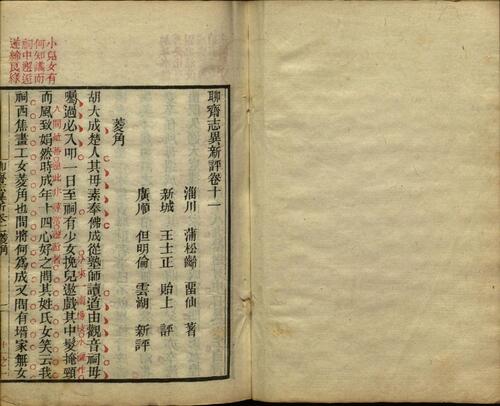 聊齋志異新評卷十一
淄川 蒲松齡 畱仙 著
新城 王士正 貽上 評
廣順 但明倫 雲湖 新評
菱角
胡大成楚人其母素奉佛成從塾師讀道由觀音祠母
囑過必入叩一日至祠有少女挽兒遨戲其中髮掩頸
而風致娟然時成年十四心好之問其姓氏女笑云我
祠西焦畫工女菱角也問將何爲成又問有壻家無女
小兒女有
何知識而
祠中邂逅
遂締良緣